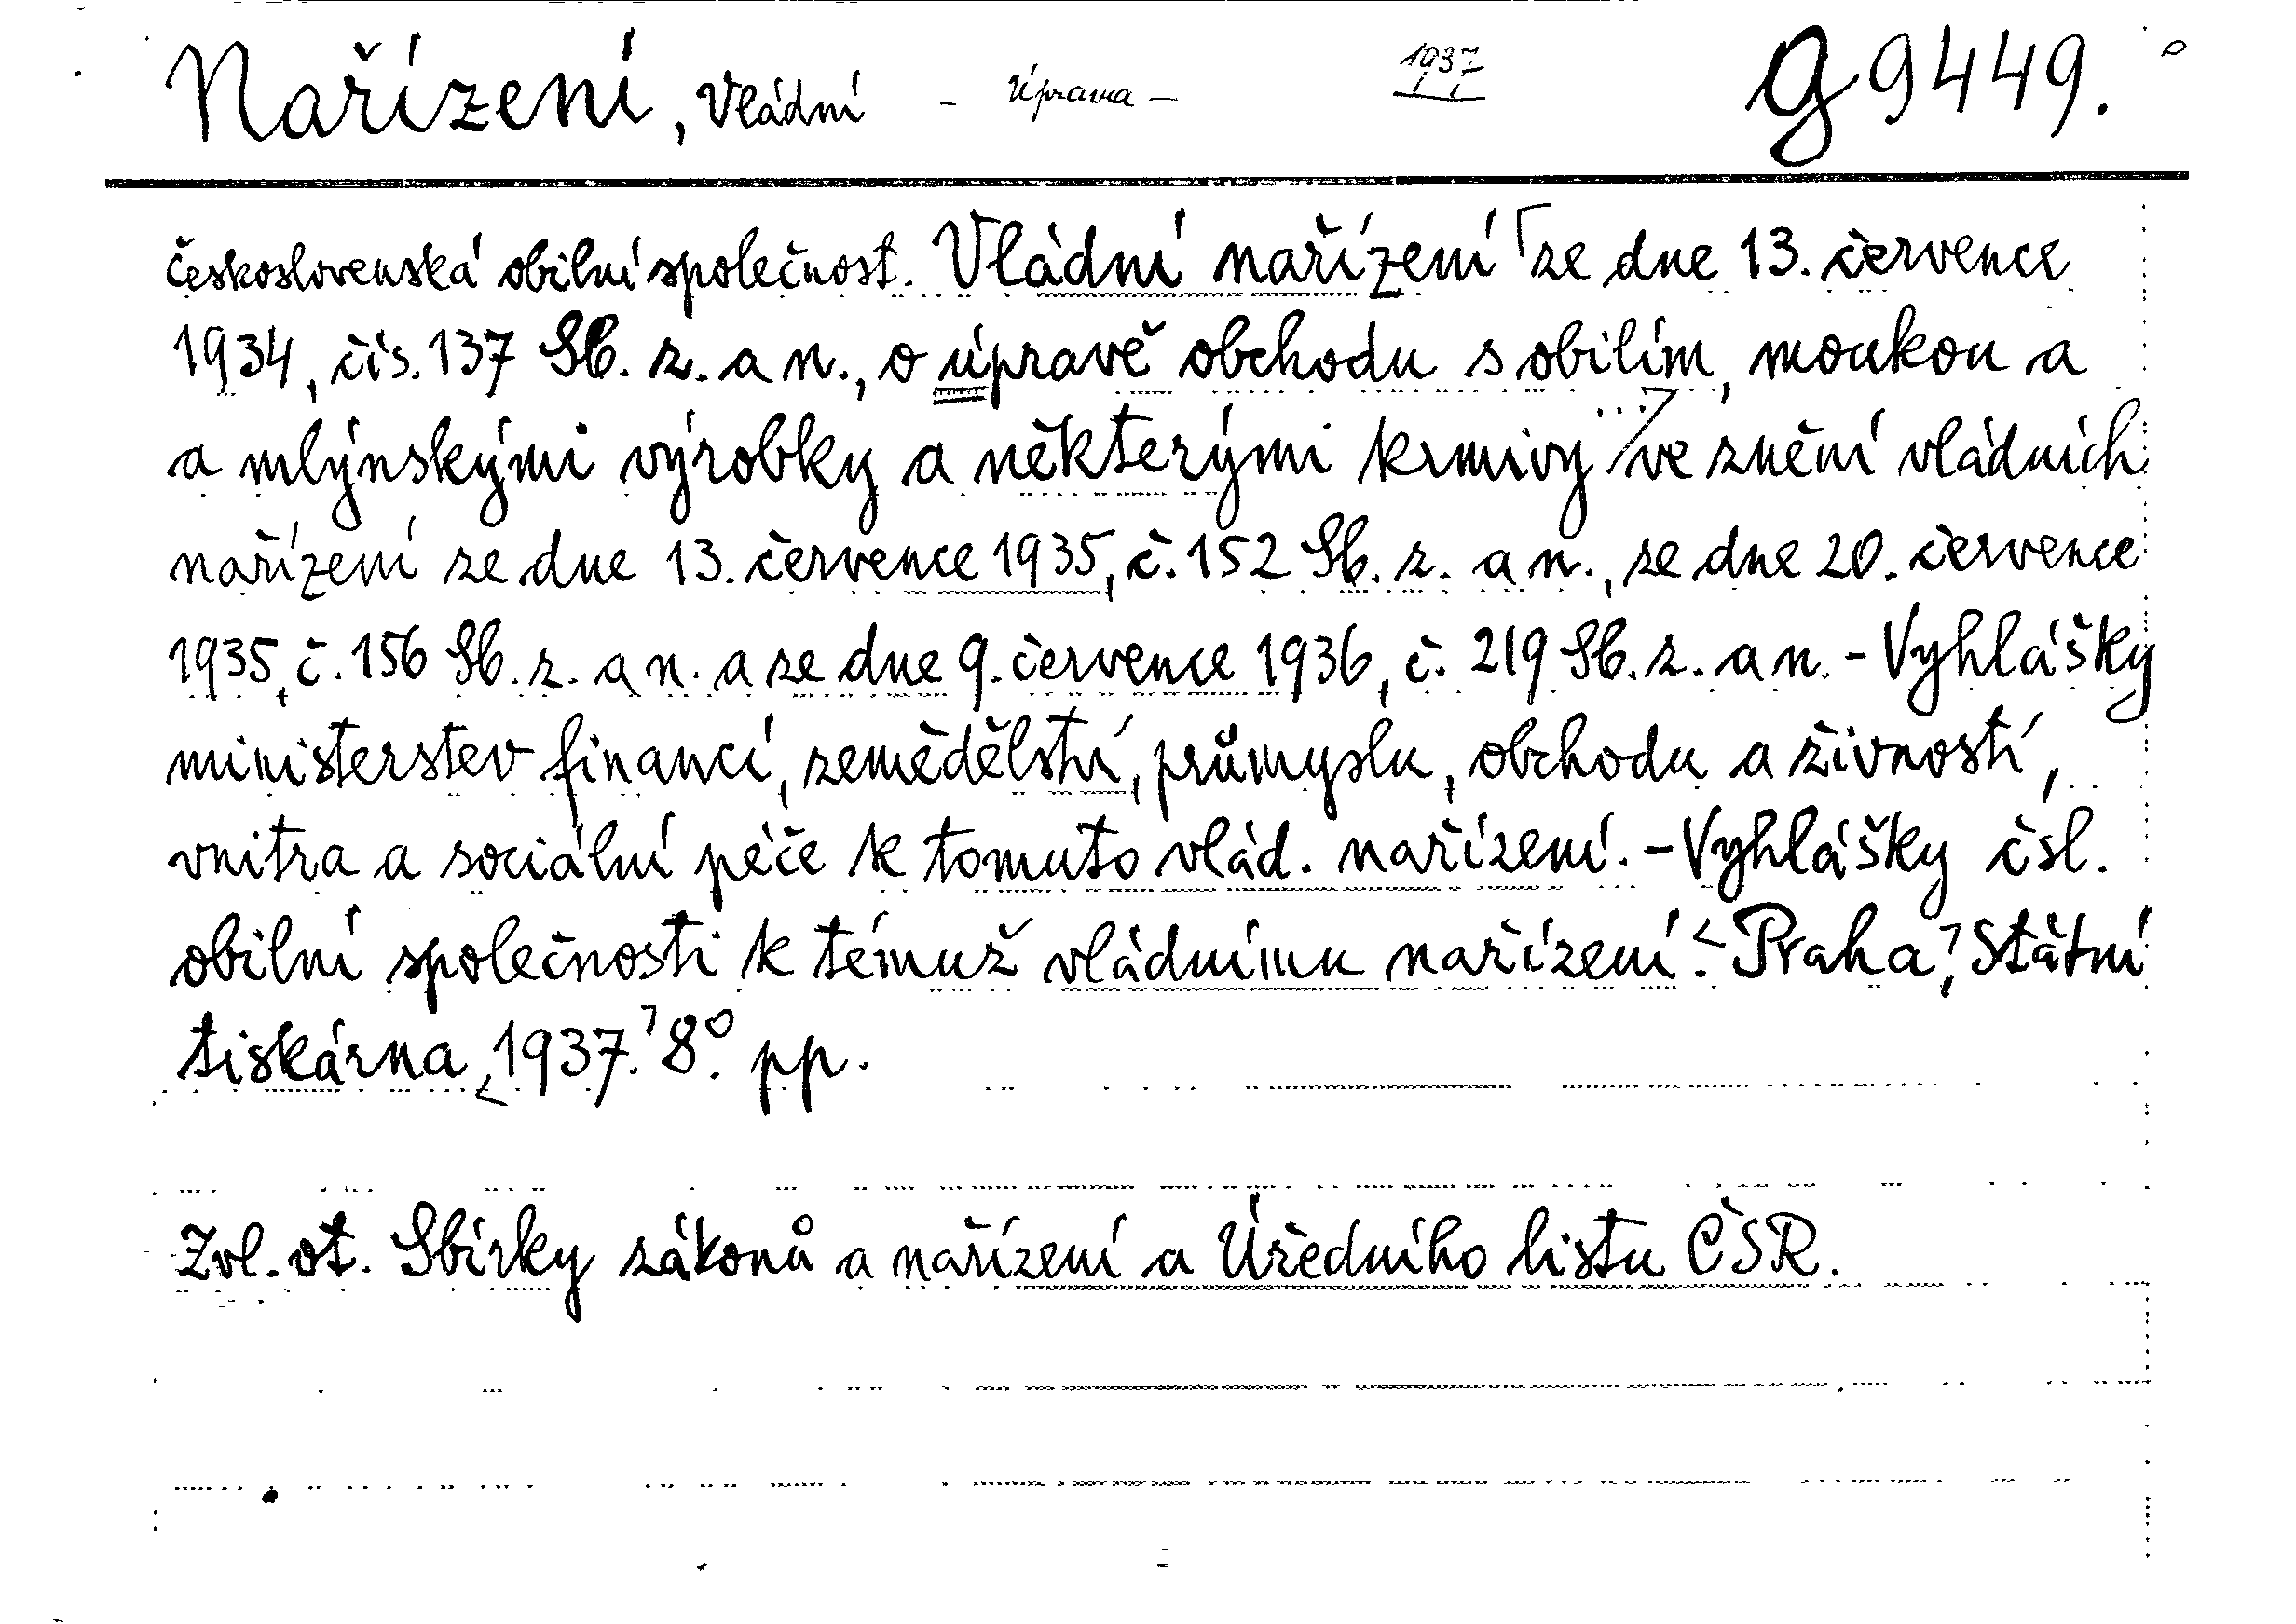 Nařízení, Vládní - úprava - 1937 g 9449.
Československá obilní společnost. Vládní nařízení ze dne 13. července
1934, čís. 137 Sb. z. a n., o úpravě obchodu s obilím, moukou a
a mlýnskými výrobky a některými krmivy ... ve znění vládních
nařízení ze dne 13. července 1935, č. 152 Sb. z. a n., ze dne 20. července
1935, č. 156 Sb. z. a n. a ze dne 9. července 1936, č. 219 Sb. z. a n. - Vyhlášky
ministerstev financí, zemědělství, průmyslu, obchodu a živností,
vnitra a sociální péče k tomuto vlád. nařízení. - Vyhlášky čsl.
obilní společnosti k témuž vládnímu nařízení. Praha, Státní
tiskárna, 1937. 8°. pp.
Zvl. ot. Sbírky zákonů a nařízení a Úředního listu ČSR.